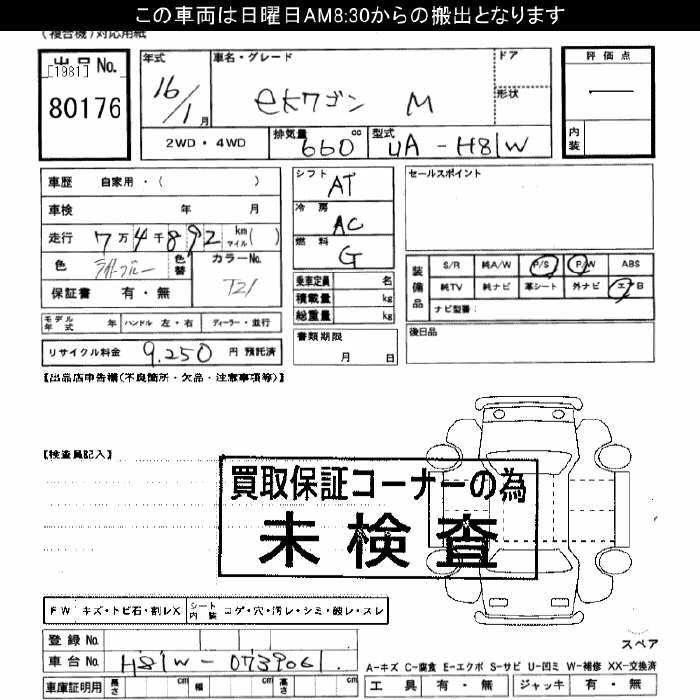 この車両は日曜日AM8:30からの搬出となります
(複合機)対応用紙
出品 No.
[1981]
80176
年式
16/1月
車名・グレード
ekワゴン M
ドア
形状
評価点
内装
2WD・4WD
排気量 660 cc
型式 UA-H81W
車歴 自家用・( )
車検 年 月
走行 7万4千892 km マイル( )
色 ライトブルー 色替
カラーNo. T21
保証書 有・無
シフト AT
冷房 AC
燃料 G
乗車定員 名
積載量 kg
総重量 kg
セールスポイント
装備品
S/R 純A/W P/S P/W ABS
純TV 純ナビ 革シート 外ナビ エアB
ナビ型番:
モデル年式 年 ハンドル 左・右 ディーラー・並行
書類期限
月 日
後日品
リサイクル料金 9,250 円 預託済
【出品店申告欄(不良箇所・欠品・注意事項等)】
【検査員記入】
買取保証コーナーの為
未検査
FW キズ・トビ石・割レX
シート内装 コゲ・穴・汚レ・シミ・破レ・スレ
登録 No.
車台 No. H81W-0739061
スペア
A-キズ C-腐食 E-エクボ S-サビ U-凹ミ W-補修 XX-交換済
車庫証明用 長さ cm 幅 cm 高さ cm
工具 有・無 ジャッキ 有・無